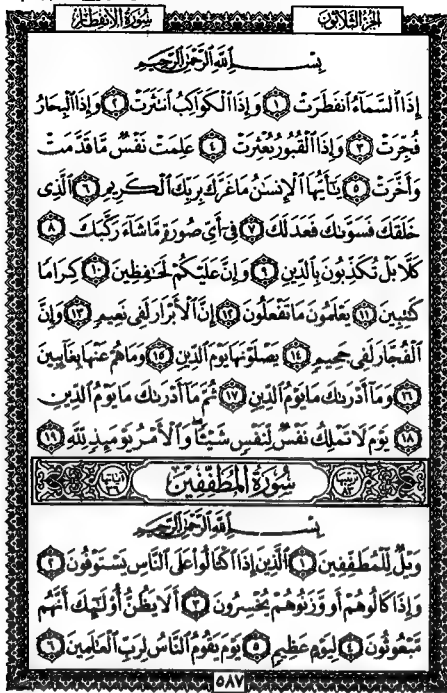 سُورَةُ الانفِطَارِ الجُزءُ الثَّلَاثُونَ
بِسْمِ اللَّهِ الرَّحْمَٰنِ الرَّحِيمِ
إِذَا ٱلسَّمَآءُ ٱنفَطَرَتْ ١ وَإِذَا ٱلْكَوَاكِبُ ٱنتَثَرَتْ ٢ وَإِذَا ٱلْبِحَارُ
فُجِّرَتْ ٣ وَإِذَا ٱلْقُبُورُ بُعْثِرَتْ ٤ عَلِمَتْ نَفْسٌ مَّا قَدَّمَتْ
وَأَخَّرَتْ ٥ يَٰٓأَيُّهَا ٱلْإِنسَٰنُ مَا غَرَّكَ بِرَبِّكَ ٱلْكَرِيمِ ٦ ٱلَّذِى
خَلَقَكَ فَسَوَّىٰكَ فَعَدَلَكَ ٧ فِىٓ أَىِّ صُورَةٍ مَّا شَآءَ رَكَّبَكَ ٨
كَلَّا بَلْ تُكَذِّبُونَ بِٱلدِّينِ ٩ وَإِنَّ عَلَيْكُمْ لَحَٰفِظِينَ ١٠ كِرَامًا
كَٰتِبِينَ ١١ يَعْلَمُونَ مَا تَفْعَلُونَ ١٢ إِنَّ ٱلْأَبْرَارَ لَفِى نَعِيمٍ ١٣ وَإِنَّ
ٱلْفُجَّارَ لَفِى جَحِيمٍ ١٤ يَصْلَوْنَهَا يَوْمَ ٱلدِّينِ ١٥ وَمَا هُمْ عَنْهَا بِغَآئِبِينَ
١٦ وَمَآ أَدْرَىٰكَ مَا يَوْمُ ٱلدِّينِ ١٧ ثُمَّ مَآ أَدْرَىٰكَ مَا يَوْمُ ٱلدِّينِ
١٨ يَوْمَ لَا تَمْلِكُ نَفْسٌ لِّنَفْسٍ شَيْـًٔا وَٱلْأَمْرُ يَوْمَئِذٍ لِّلَّهِ ١٩
ترتيبها ٨٣ سُورَةُ المُطَفِّفِينَ آياتها ٣٦
بِسْمِ اللَّهِ الرَّحْمَٰنِ الرَّحِيمِ
وَيْلٌ لِّلْمُطَفِّفِينَ ١ ٱلَّذِينَ إِذَا ٱكْتَالُوا۟ عَلَى ٱلنَّاسِ يَسْتَوْفُونَ ٢
وَإِذَا كَالُوهُمْ أَو وَّزَنُوهُمْ يُخْسِرُونَ ٣ أَلَا يَظُنُّ أُو۟لَٰٓئِكَ أَنَّهُم
مَّبْعُوثُونَ ٤ لِيَوْمٍ عَظِيمٍ ٥ يَوْمَ يَقُومُ ٱلنَّاسُ لِرَبِّ ٱلْعَٰلَمِينَ ٦
٥٨٧